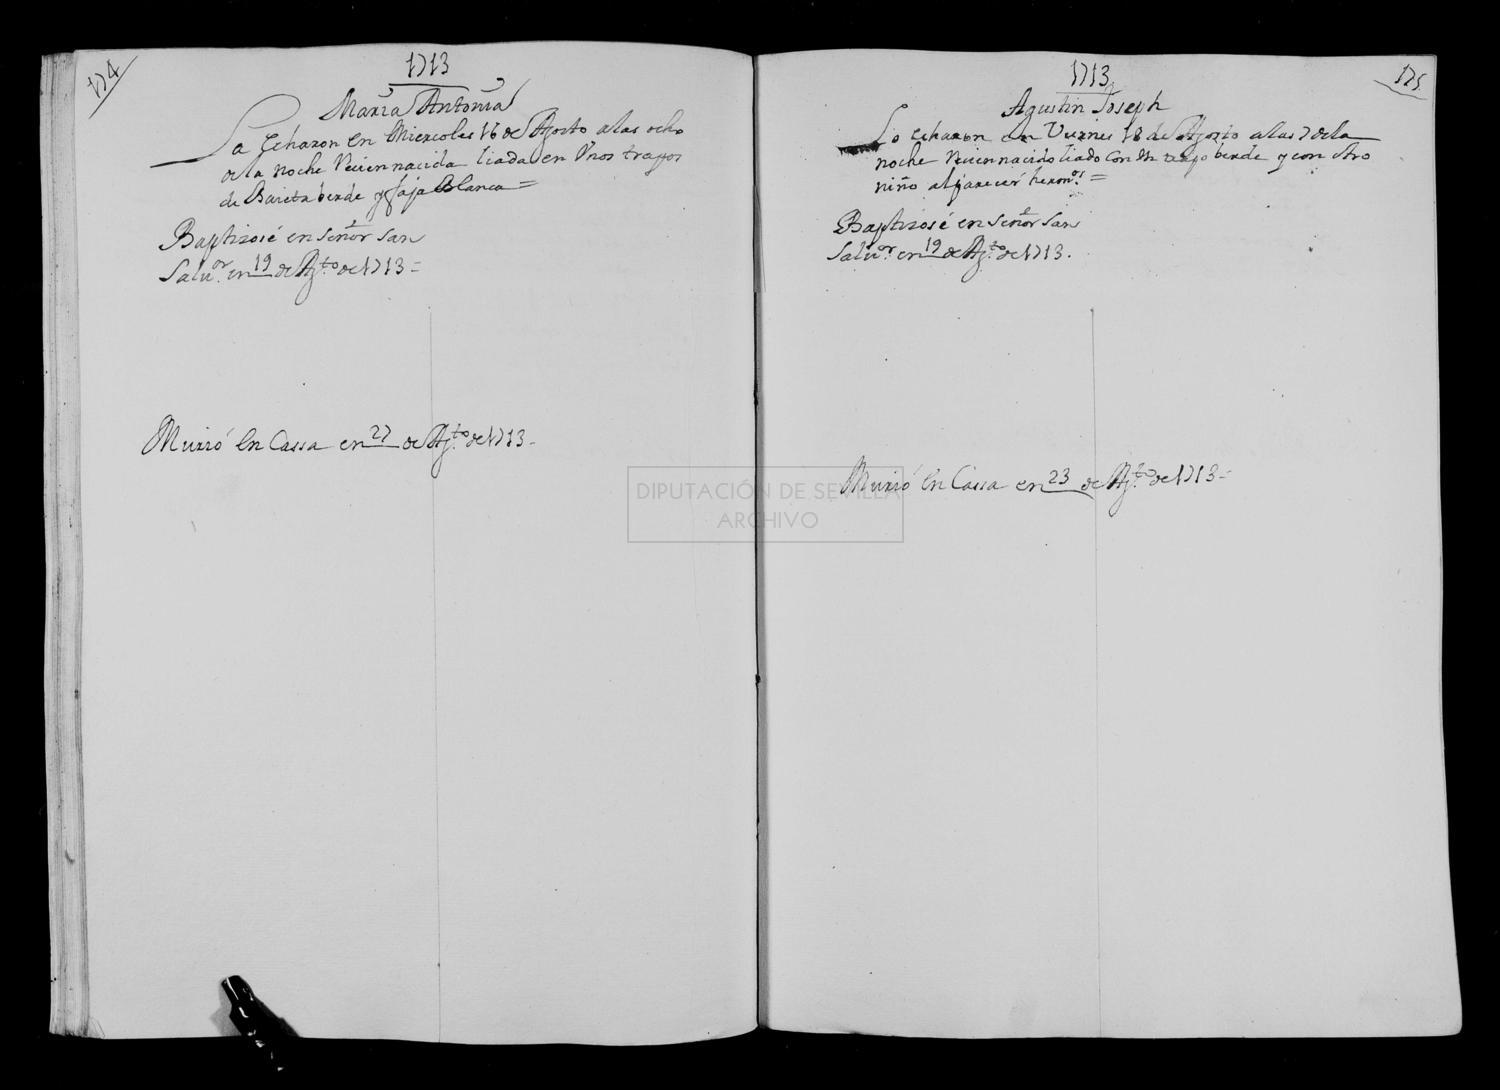 174
1713
Maria Antonia
La Echaron en Miercoles 16 de Agosto a las ocho
de la noche Recien nacida liada en Vnos trapos
de Baieta berde y faja Blanca =
Baptizosé en Señor San
Saluor. en 19 de Agto. de 1713 =
Murió En Cassa en 27 de Agto. de 1713 -
1713
175
Agustin Joseph
Lo Echaron en Viernes 18 de Agosto a las 7 de la
noche Recien nacido liado con Vn trapo berde y con otro
niño al parecer hermos. =
Baptizosé en Señor San
Saluor. en 19 de Agto. de 1713.
Murió En Cassa en 23 de Agto. de 1713 =
DIPUTACIÓN DE SEVILLA
ARCHIVO